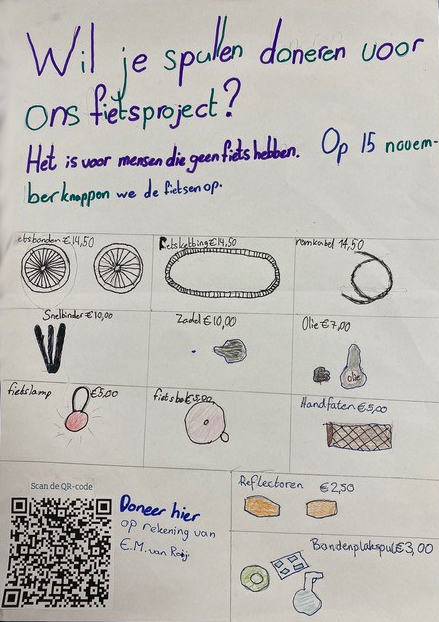 Wil je spullen doneren voor
ons fietsproject?
Het is voor mensen die geen fiets hebben. Op 15 novem-
ber knappen we de fietsen op.
etsbanden €14,50
Fietsketting €14,50
remkabel 14,50
Snelbinder €10,00
Zadel €10,00
Olie €7,00
olie
fietslamp €5,00
fietsbel €5,00
Handfaten €5,00
Reflectoren €2,50
Scan de QR-code
Doneer hier
op rekening van
E.M. van Rooij
Bandenplakspul €3,00